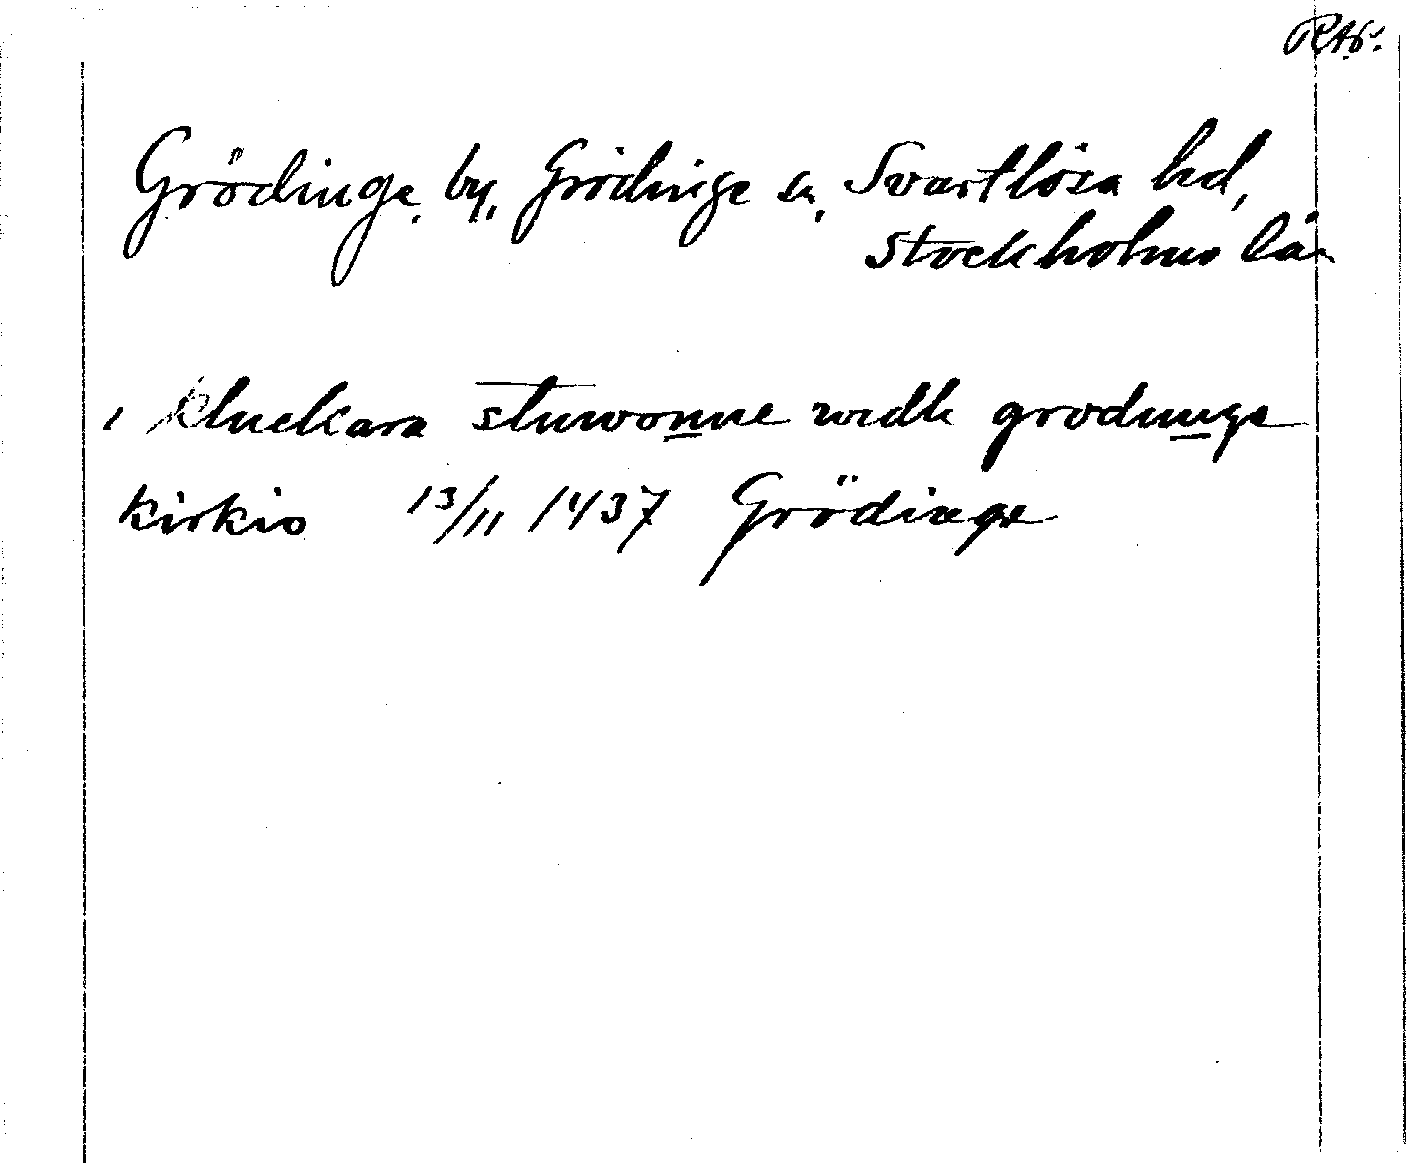 RAp.
Grödinge by, Grödinge sn, Svartlösa hd,
Stockholms län
i kluckara stuwonne widh grodinge
kirkio 13/11 1437 Grödinge